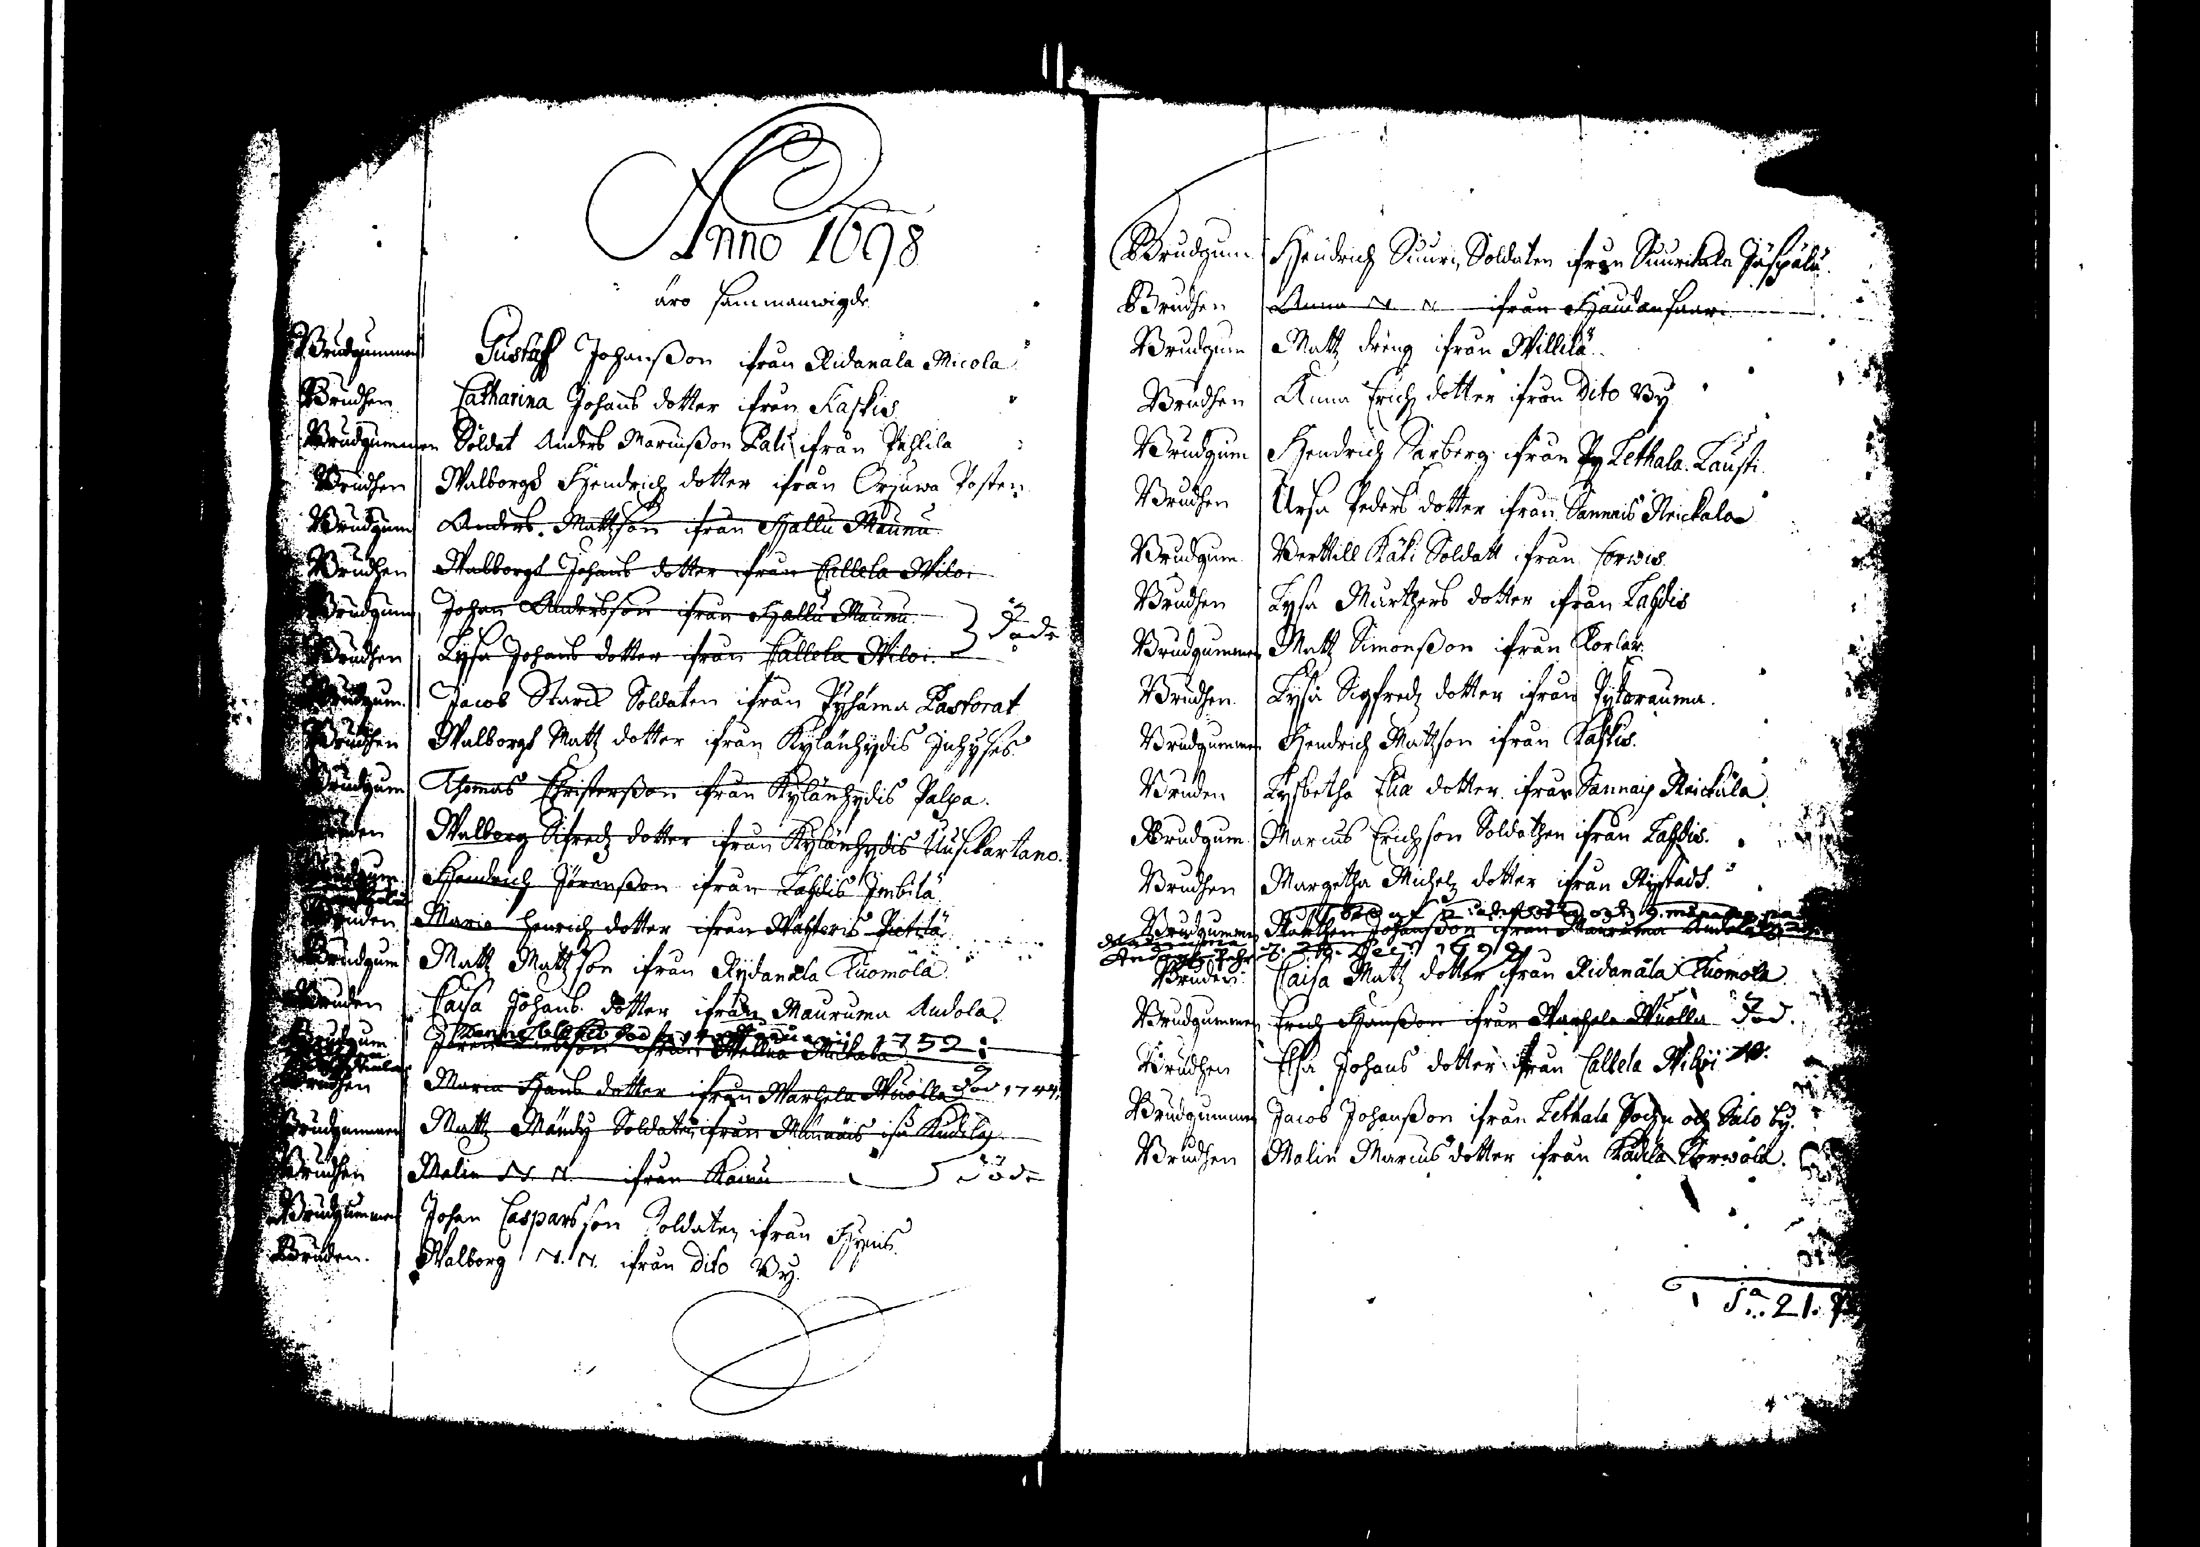 Anno 1698
äro sammanwigde
Brudgummen Gustaff Johanßon ifrån Ridanala Micola
Brudhen Catharina Johans dotter ifrån Kaskis
Brudgummen Soldat Anders Marcusson Lali ifrån Pehlila
Brudhen Walborgh Hendrich dotter ifrån Orjuwa Posten
Brudgum Anders Mattson ifrån Hallu Maunu
Brudhen Walborgh Johans dotter ifrån Callela Wiloi
Brudgum Johan Andersson ifrån Hallu Maunu
Döde
Brudhen Lysa Johans dotter ifrån Callela Wiloi
Brudgum Jacob Starck Soldaten ifrån Pyhäma Pastorat
Brudhen Walborgh Matz dotter ifrån Kylänhydis Juhyhes
Brudgum Thomas Christerßon ifrån Kylänhydis Palpa
Bruden Walborg Sifredz dotter ifrån Kylänhydis Uusikartano
Brudgum Hendrich Jörenßon ifrån Lahdis Imbilä
Bruden Maria Henrich dotter ifrån Wahteris Pietilä
Brudgum Matz Matzson ifrån Rydanala Tuomola
Bruden Caisa Johans dotter ifrån Mauruma Andola
1752
Brudgum
Brudhen Maria Hans dotter ifrån Warhela Wuolla död 1744
Brudgummen Matz Mändy Soldaten ifrån
Brudhen Malin N. N. ifrån Kainu Döde
Brudgummen Johan Casparsson Soldaten ifrån Hynis
Bruden Walborg N. N. ifrån Dito By
Brudgum Hendrich Suuri Soldaten ifrån Suurikala
Brudhen Anna N N ifrån Haudansaari
Brudgum Matz dräng ifrån Willilä
Brudhen Anna Erichz dotter ifrån Dito By
Brudgum Hendrich Sarberg ifrån Py Lethala Lausti
Brudhen Ursa Peders dotter ifrån Sannais Reickala
Brudgum Bertill Käki Soldatt ifrån Corwis
Brudhen Lysa Murthens dotter ifrån Lahdis
Brudgummen Matz Simonßon ifrån Korlax
Brudhen Lysa Sigfredz dotter ifrån Pytterauma
Brudgummen Hendrich Mattson ifrån Kaskis
Bruden Lysbetha Elia dotter ifrån Sannais Reickala
Brudgum Marcus Erichson Soldathen ifrån Lahdis
Brudhen Margetha Michelz dotter ifrån Nystadh
Brudgummen Johanßon ifrån Mauruma Andola
Bruden Caisa Matz dotter ifrån Ridanala Tuomola
Brudgummen Erich Hanßon ifrån Warhela Wuolla Död
Brudhen Elsa Johans dotter ifrån Callela Wiloi
Brudgummen Jacob Johanßon ifrån Lethala Sochn och Salo by
Brudhen Malin Marcus dotter ifrån Kadila Korwola
Sa 21